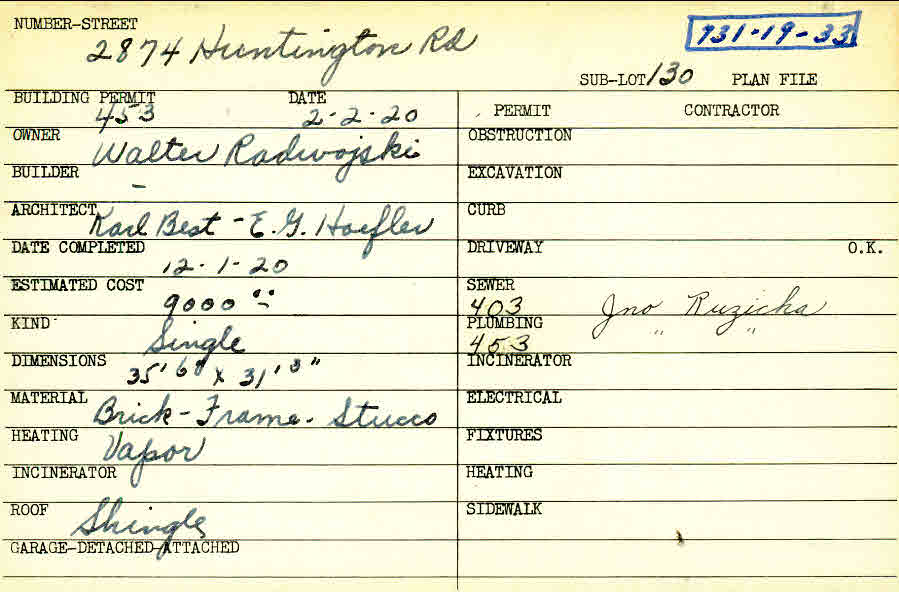 NUMBER-STREET
2874 Huntington Rd
731-19-33
SUB-LOT 130 PLAN FILE
BUILDING PERMIT DATE
453 2-2-20
PERMIT CONTRACTOR
OWNER
Walter Radwojski
OBSTRUCTION
BUILDER
-
EXCAVATION
ARCHITECT
Karl Best - E. G. Hoefler
CURB
DATE COMPLETED
12-1-20
DRIVEWAY O.K.
ESTIMATED COST
9000 00
SEWER
403 Jno Ruzicha
KIND
Single
PLUMBING
453 " "
DIMENSIONS
35' 6" x 31' 3"
INCINERATOR
MATERIAL
Brick - Frame - Stucco
ELECTRICAL
HEATING
Vapor
FIXTURES
INCINERATOR
HEATING
ROOF
Shingle
SIDEWALK
GARAGE-DETACHED-ATTACHED